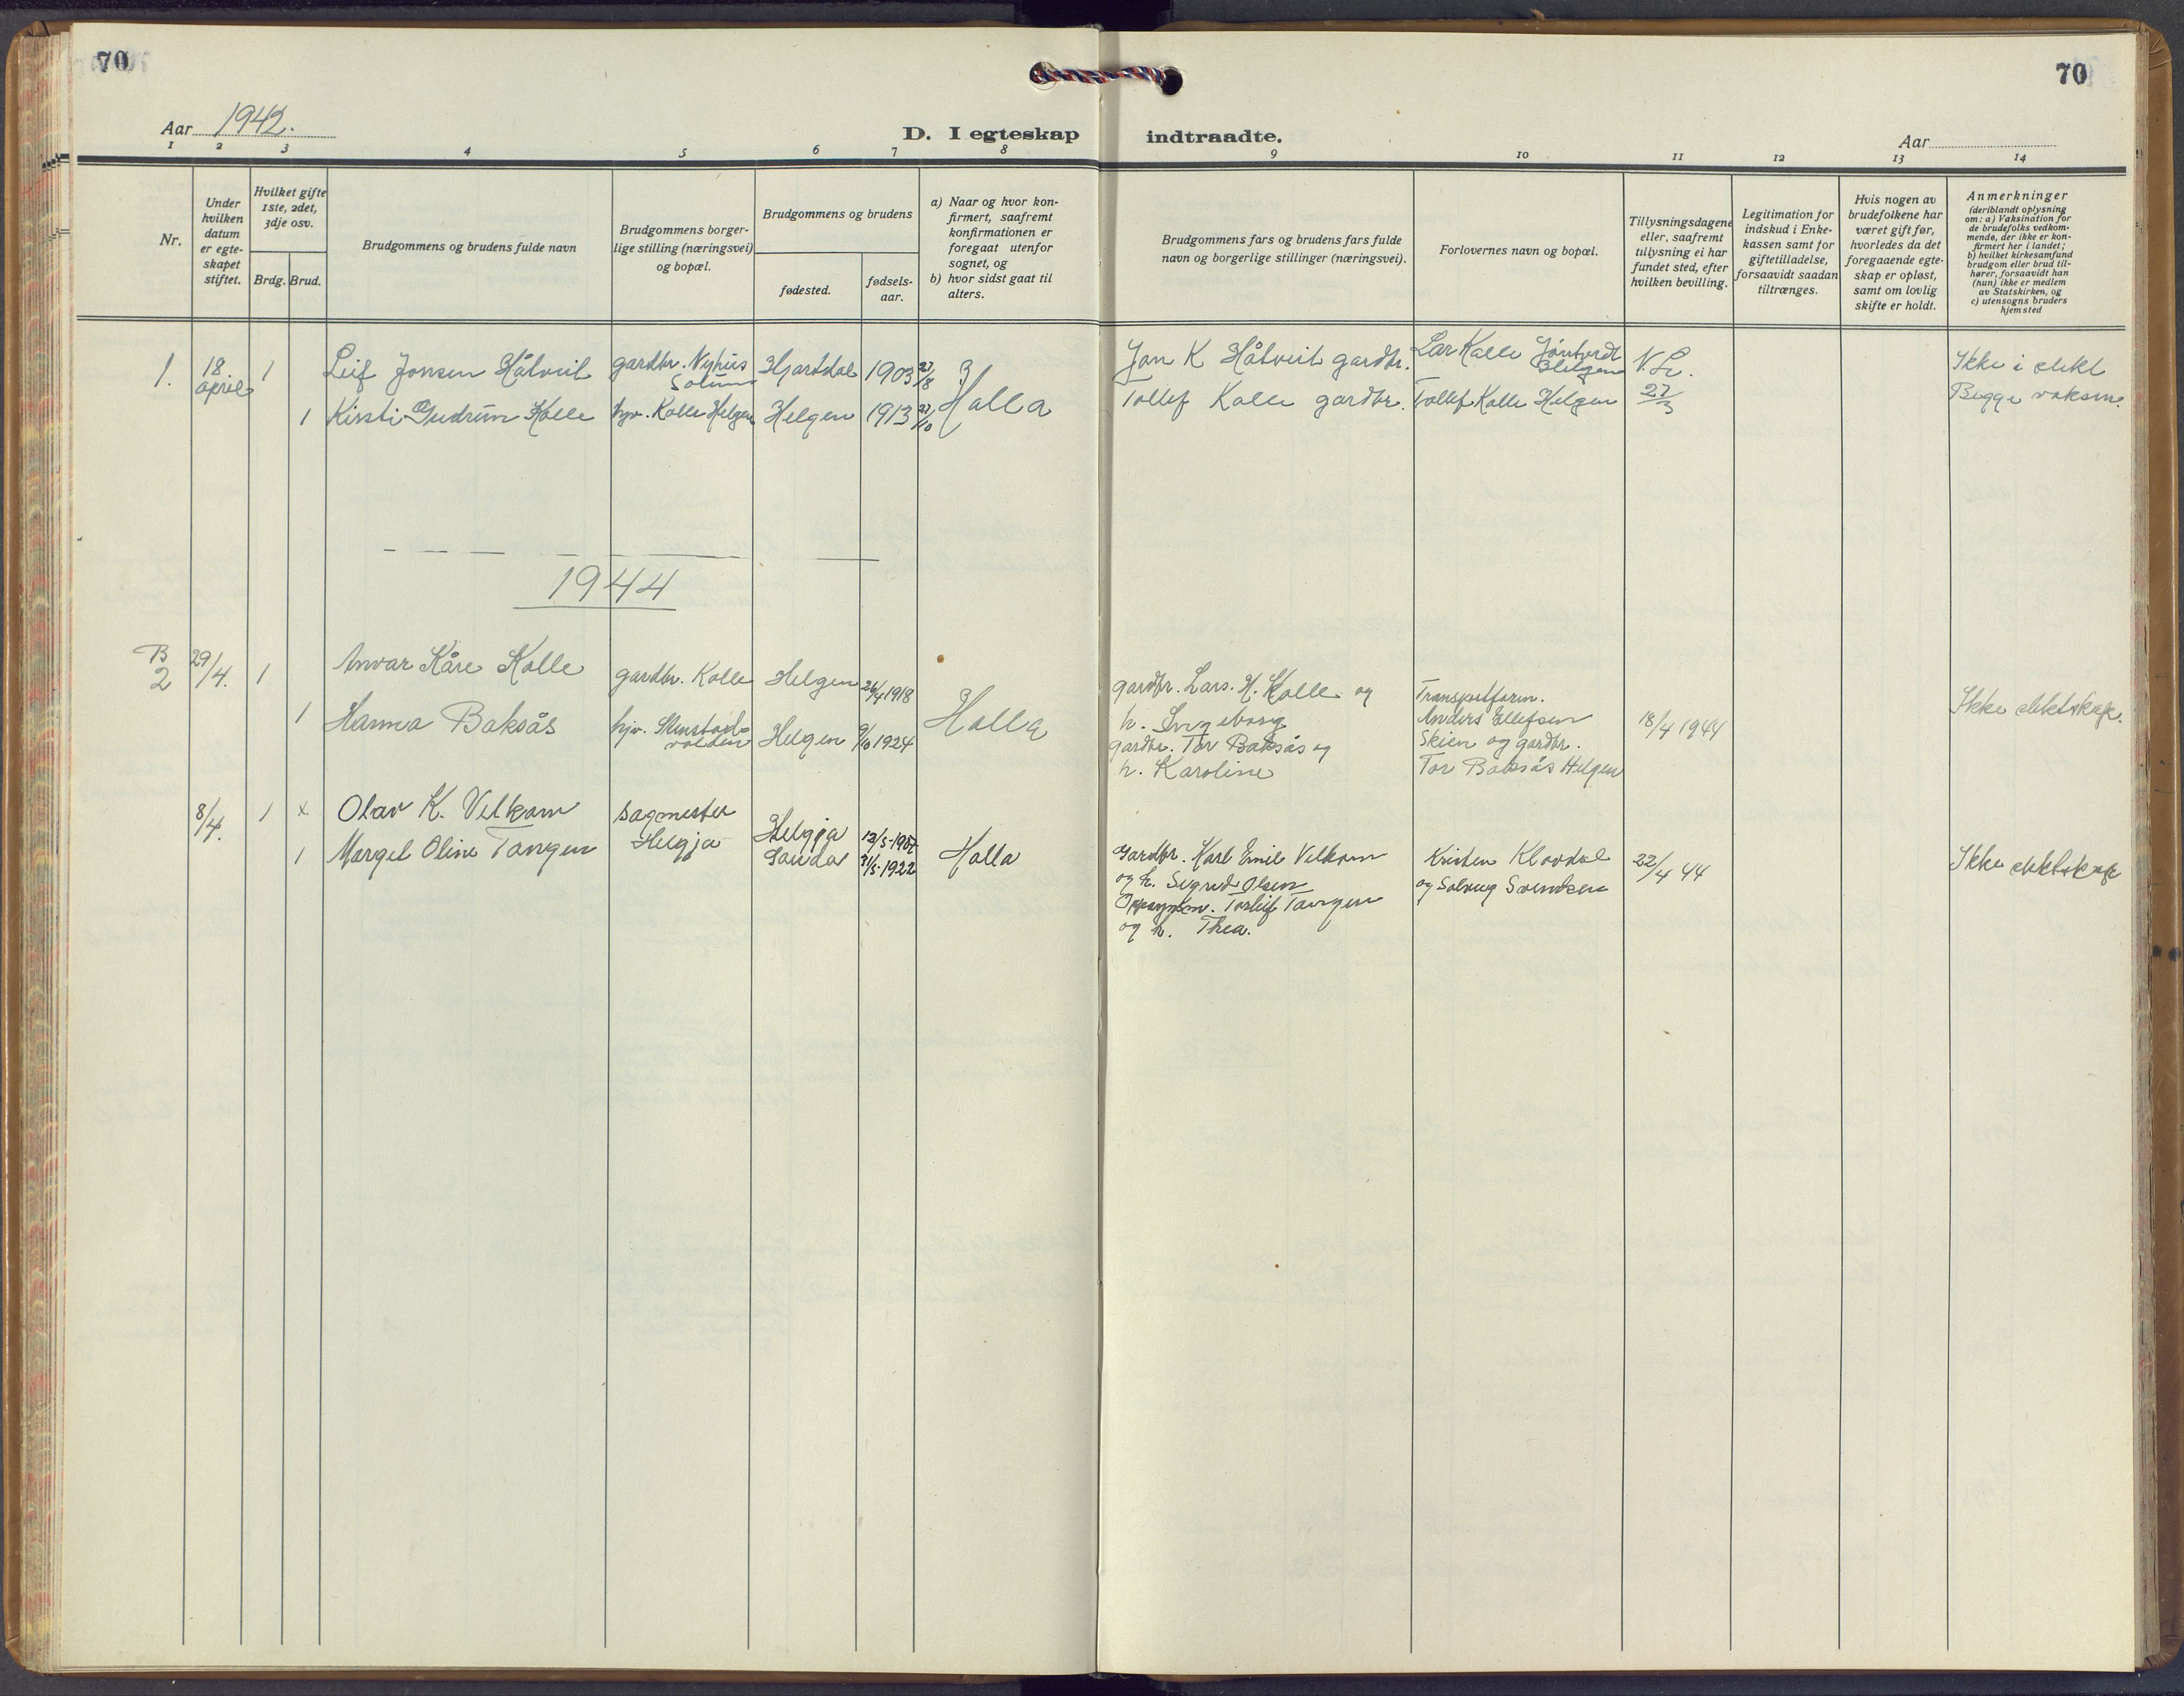 70
70
Aar 1942.
D. I egteskap indtraadte.
Aar
1 2 3 4 5 6 7 8 9 10 11 12 13 14
Nr.
Under
hvilken
datum
er egte-
skapet
stiftet.
Hvilket gifte
1ste, 2det,
3dje osv.
Brdg. Brud.
Brudgommens og brudens fulde navn
Brudgommens borger-
lige stilling (næringsvei)
og bopæl.
Brudgommens og brudens
fødested.
fødsels-
aar.
a) Naar og hvor kon-
firmert, saafremt
konfirmationen er
foregaat utenfor
sognet, og
b) hvor sidst gaat til
alters.
Brudgommens fars og brudens fars fulde
navn og borgerlige stillinger (næringsvei).
Forlovernes navn og bopæl.
Tillysningsdagene
eller, saafremt
tillysning ei har
fundet sted, efter
hvilken bevilling.
Legitimation for
indskud i Enke-
kassen samt for
giftetilladelse,
forsaavidt saadan
tiltrænges.
Hvis nogen av
brudefolkene har
været gift før,
hvorledes da det
foregaaende egte-
skap er opløst,
samt om lovlig
skifte er holdt.
Anmerkninger
(deriblandt oplysning
om: a) Vaksination for
de brudefolks vedkom-
mende, der ikke er kon-
firmert her i landet;
b) hvilket kirkesamfund
brudgom eller brud til-
hører, forsaavidt han
(hun) ikke er medlem
av Statskirken, og
c) utensogns bruders
hjemsted
1. 18 april 1 Leif Jonsen Håtveit gardbr. Nyhus Solum Hjartdal 1903 27/8 ?
Jon K Håtveit gardbr. Lar Kalle Helgen N. L. Ikke i slekt
1 Kirsti Gudrun Kolle hjv. Kolle Helgen Helgen 1913 27/10 Holla
Tollef Kolle gardbr. Tollef Kolle Helgen 27/3 Begge vaksin.
1944
B 2 29/4. 1 Anvar Kåre Kolle gardbr. Kolle Helgen 26/4 1918
1 Hanna Baksås hjv. Helgen 9/10 1924 Holla
gardbr. Lars. H. Kolle og
h. Ingeborg
gardbr. Tor Baksås og
h. Karoline
Transportform.
Anders Ellefsen
Skien og gardbr.
Tor Baksås Helgen
18/4 1944
Ikke slektskap.
8/4. 1 x Olav K. Velkam sagmester Helgja 12/5-1907
1 Margit Oline Tangen Helgja Sauda 31/5-1922 Holla
Gardbr. Karl Emil Velkom
og h. Sigrid Olsen
Torleif Tangen
og h. Thea.
Kristen Klovdal
og Solveig Svendsen
22/4 44
Ikke slektskap